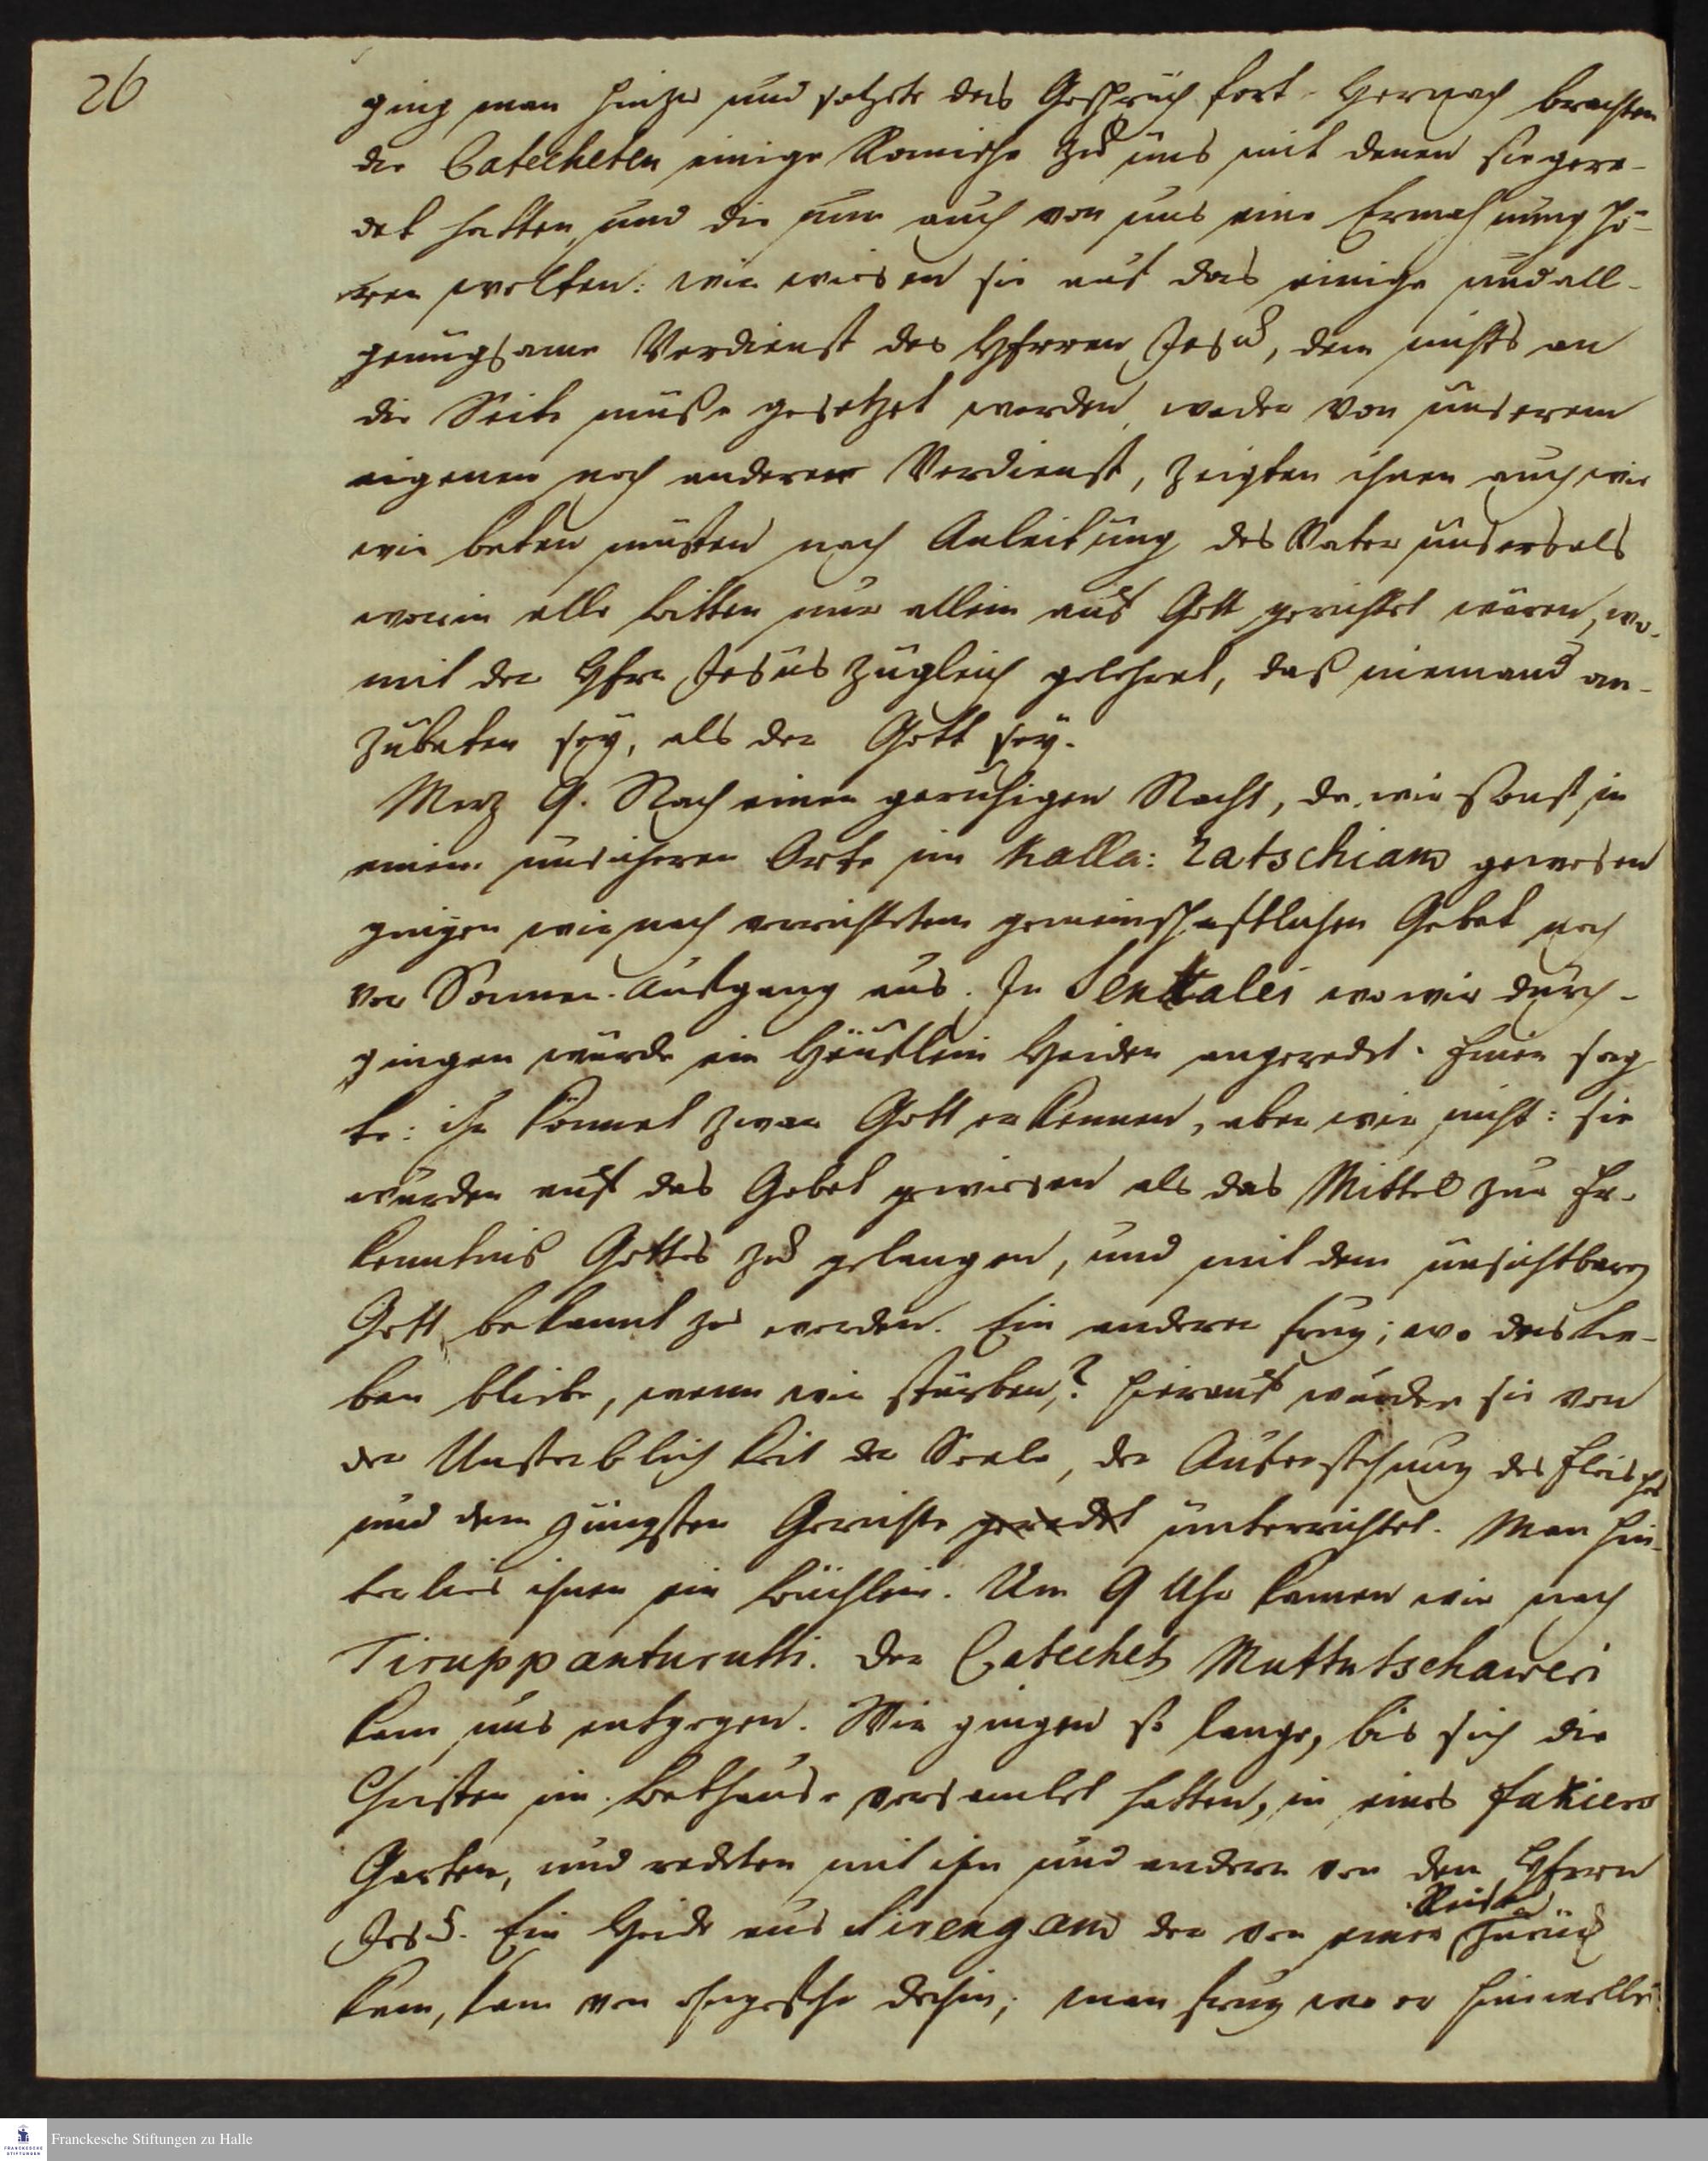 26
ging man hinzu und sezte das Gespräch fort. Hernach brachten
die Catecheten einige Römische zu uns mit denen sie gere-
det hatten, und die nun auch von uns eine Ermahnung hö-
ren wolten: wir wiesen sie auf das einige und all-
genugsame Verdienst des HErren Jesu, dem nichts an
die Seite müße gesetzet werden, weder von unserem
eigenen noch anderer Verdienst, zeigten ihnen auch wie
wir beten müsten nach Anleitung des Vater unsers als
worin alle bitten nur allein auf Gott gerichtet wären, wo-
mit der HErr Jesus zugleich gelehret, daß niemand an-
zubeten sey, als der Gott sey.
Merz 9. Nach einer geruhigen Nacht, da wir sonst in
einem unsicheren Orte im Kalla: Natschiam gewesen
gingen wir nach verrichtetem gemeinschaftlichen Gebet noch
vor Sonnen-Aufgang aus. In Senkalei wo wir durch-
gingen wurde ein Häuflein Heiden angeredet. Einer sag-
te: ihr könnet zwar Gott erkennen, aber wir nicht: sie
wurden auf das Gebet gewiesen als das Mittel zur Er-
kenntniß Gottes zu gelangen, und mit dem unsichtbaren
Gott bekannt zu werden. Ein anderer frug; wo das Le-
ben bliebe, wenn wir stürben? hierauf wurden sie von
der Unsterblichkeit der Seele, der Auferstehung des Fleisches
und dem jüngsten Gerichte geredet unterrichtet. Man hin-
terlies ihnen ein büchlein. Um 9 Uhr kamen wir nach
Tiruppanturutti. Der Catechet Muttutschaweri
kam uns entgegen. Wir gingen so lange, bis sich die
Christen im Bethause versamlet hatten, in eines Fakiers
Garten, und redeten mit ihm und andern von dem HErrn
Jesu. Ein Heide aus Sirengam der von einer Reise zurück
kam, kam von ohngefehr dahin; man frug wo er hinwolle:
Franckesche Stiftungen zu Halle